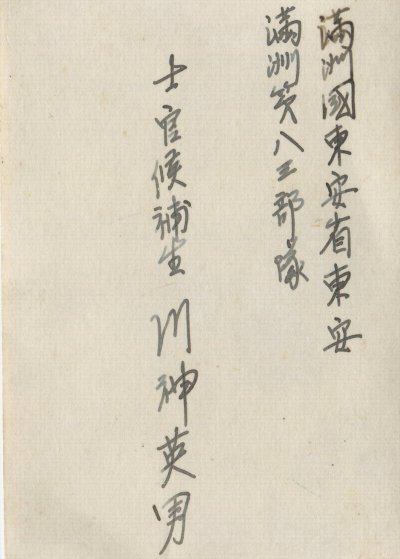 滿洲國東安省東安
滿洲第八三部隊
士官候補生 川神英男